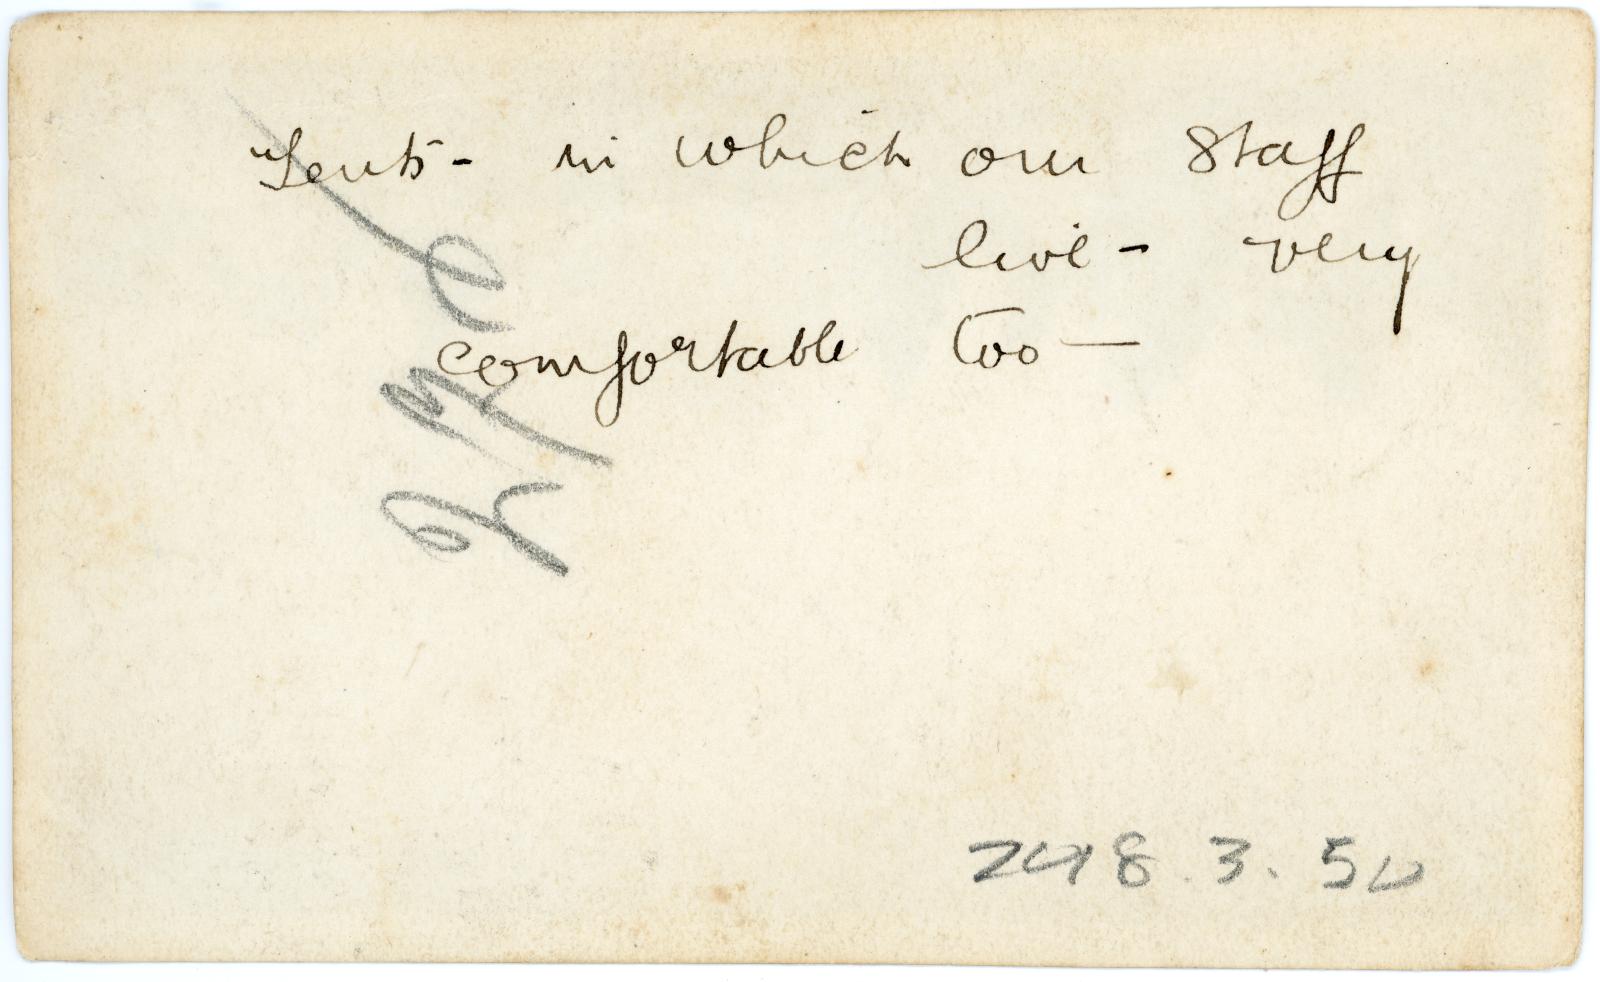 Tents - in which our Staff
live - very
comfortable too —
298.3.50